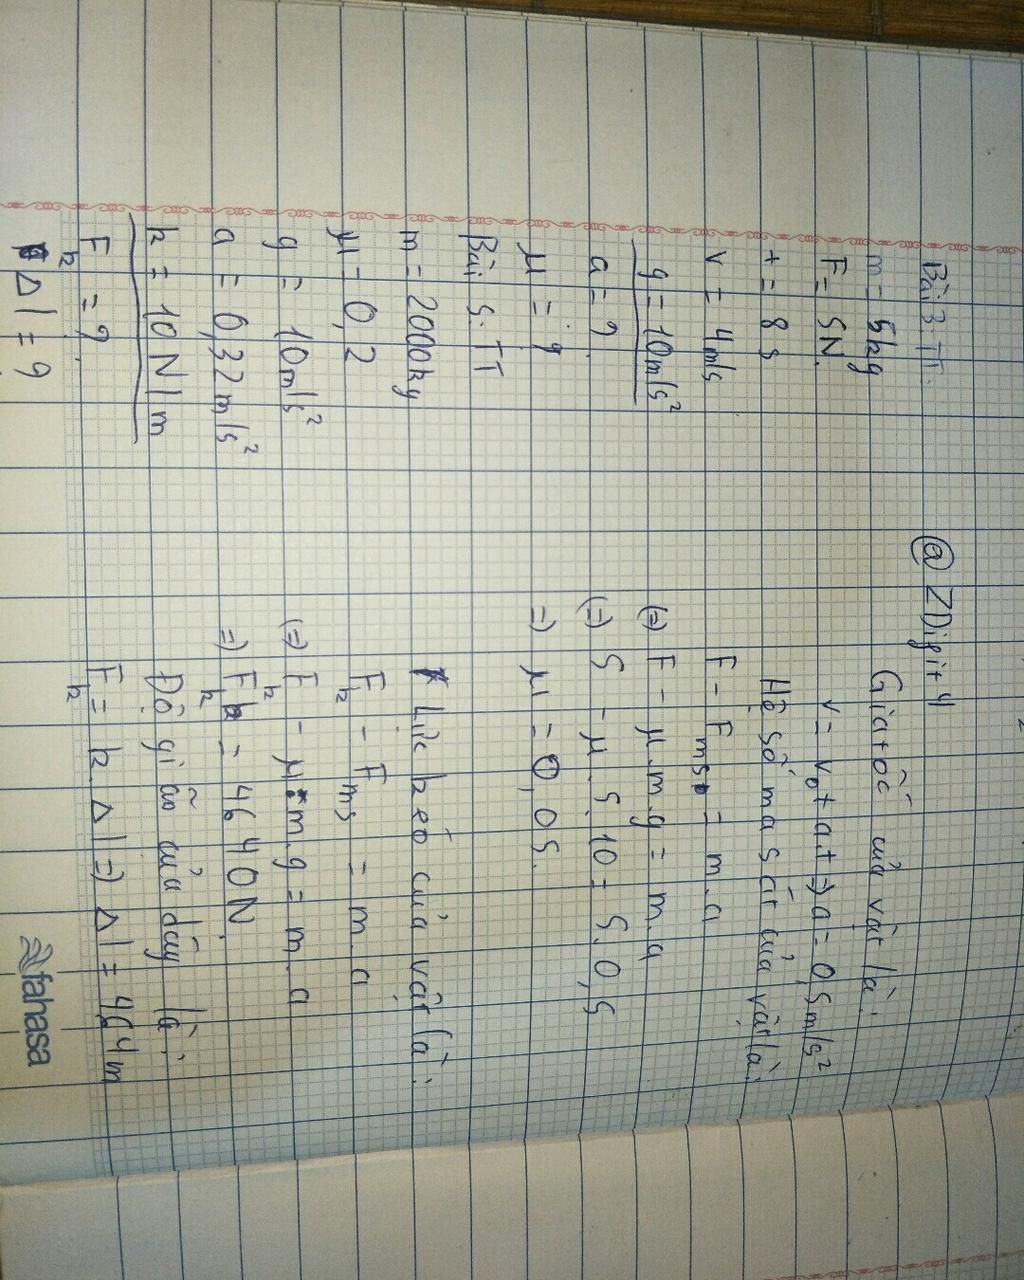 Bài 3 TT.
m = 5kg
F = 5N.
t = 8s
v = 4m/s
g = 10m/s²
a = ?
μ = ?
@ZDigit4
Gia tốc của vật là:
v = v₀ + a.t => a = 0,5m/s²
Hệ số ma sát của vật là:
F - Fms = m.a
(=) F - μ.m.g = m.a
(=) 5 - μ.5.10 = 5.0,5
=) μ = 0,05.
Bài 5: TT
m = 2000kg
μ = 0,2
g = 10m/s²
a = 0,32m/s²
k = 10N/m
Fk = ?
Δl = ?
* Lực kéo của vật là:
Fk - Fms = m.a
(=) Fk - μ.m.g = m.a
=) Fk = 4640N.
Độ giãn của dây là:
Fk = k.Δl =) Δl = 464m
fahasa